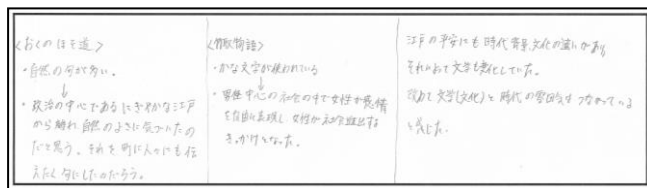 〈おくのほそ道〉
・自然の句が多い。
↓
・政治の中心であるにぎやかな江戸
から離れ自然のよさに気づいたの
だと思う。それを町に人々にも伝
えたく句にしたのだろう。
〈竹取物語〉
・かな文字が使われている
↓
・男性中心の社会の中で女性が感情
を自由に表現し女性が社会進出する
きっかけとなった。
江戸の平安にも時代背景、文化の違いがある
それによって文学も変化していた。
文学(文化)と時代の雰囲気はつながっている
と感じた。